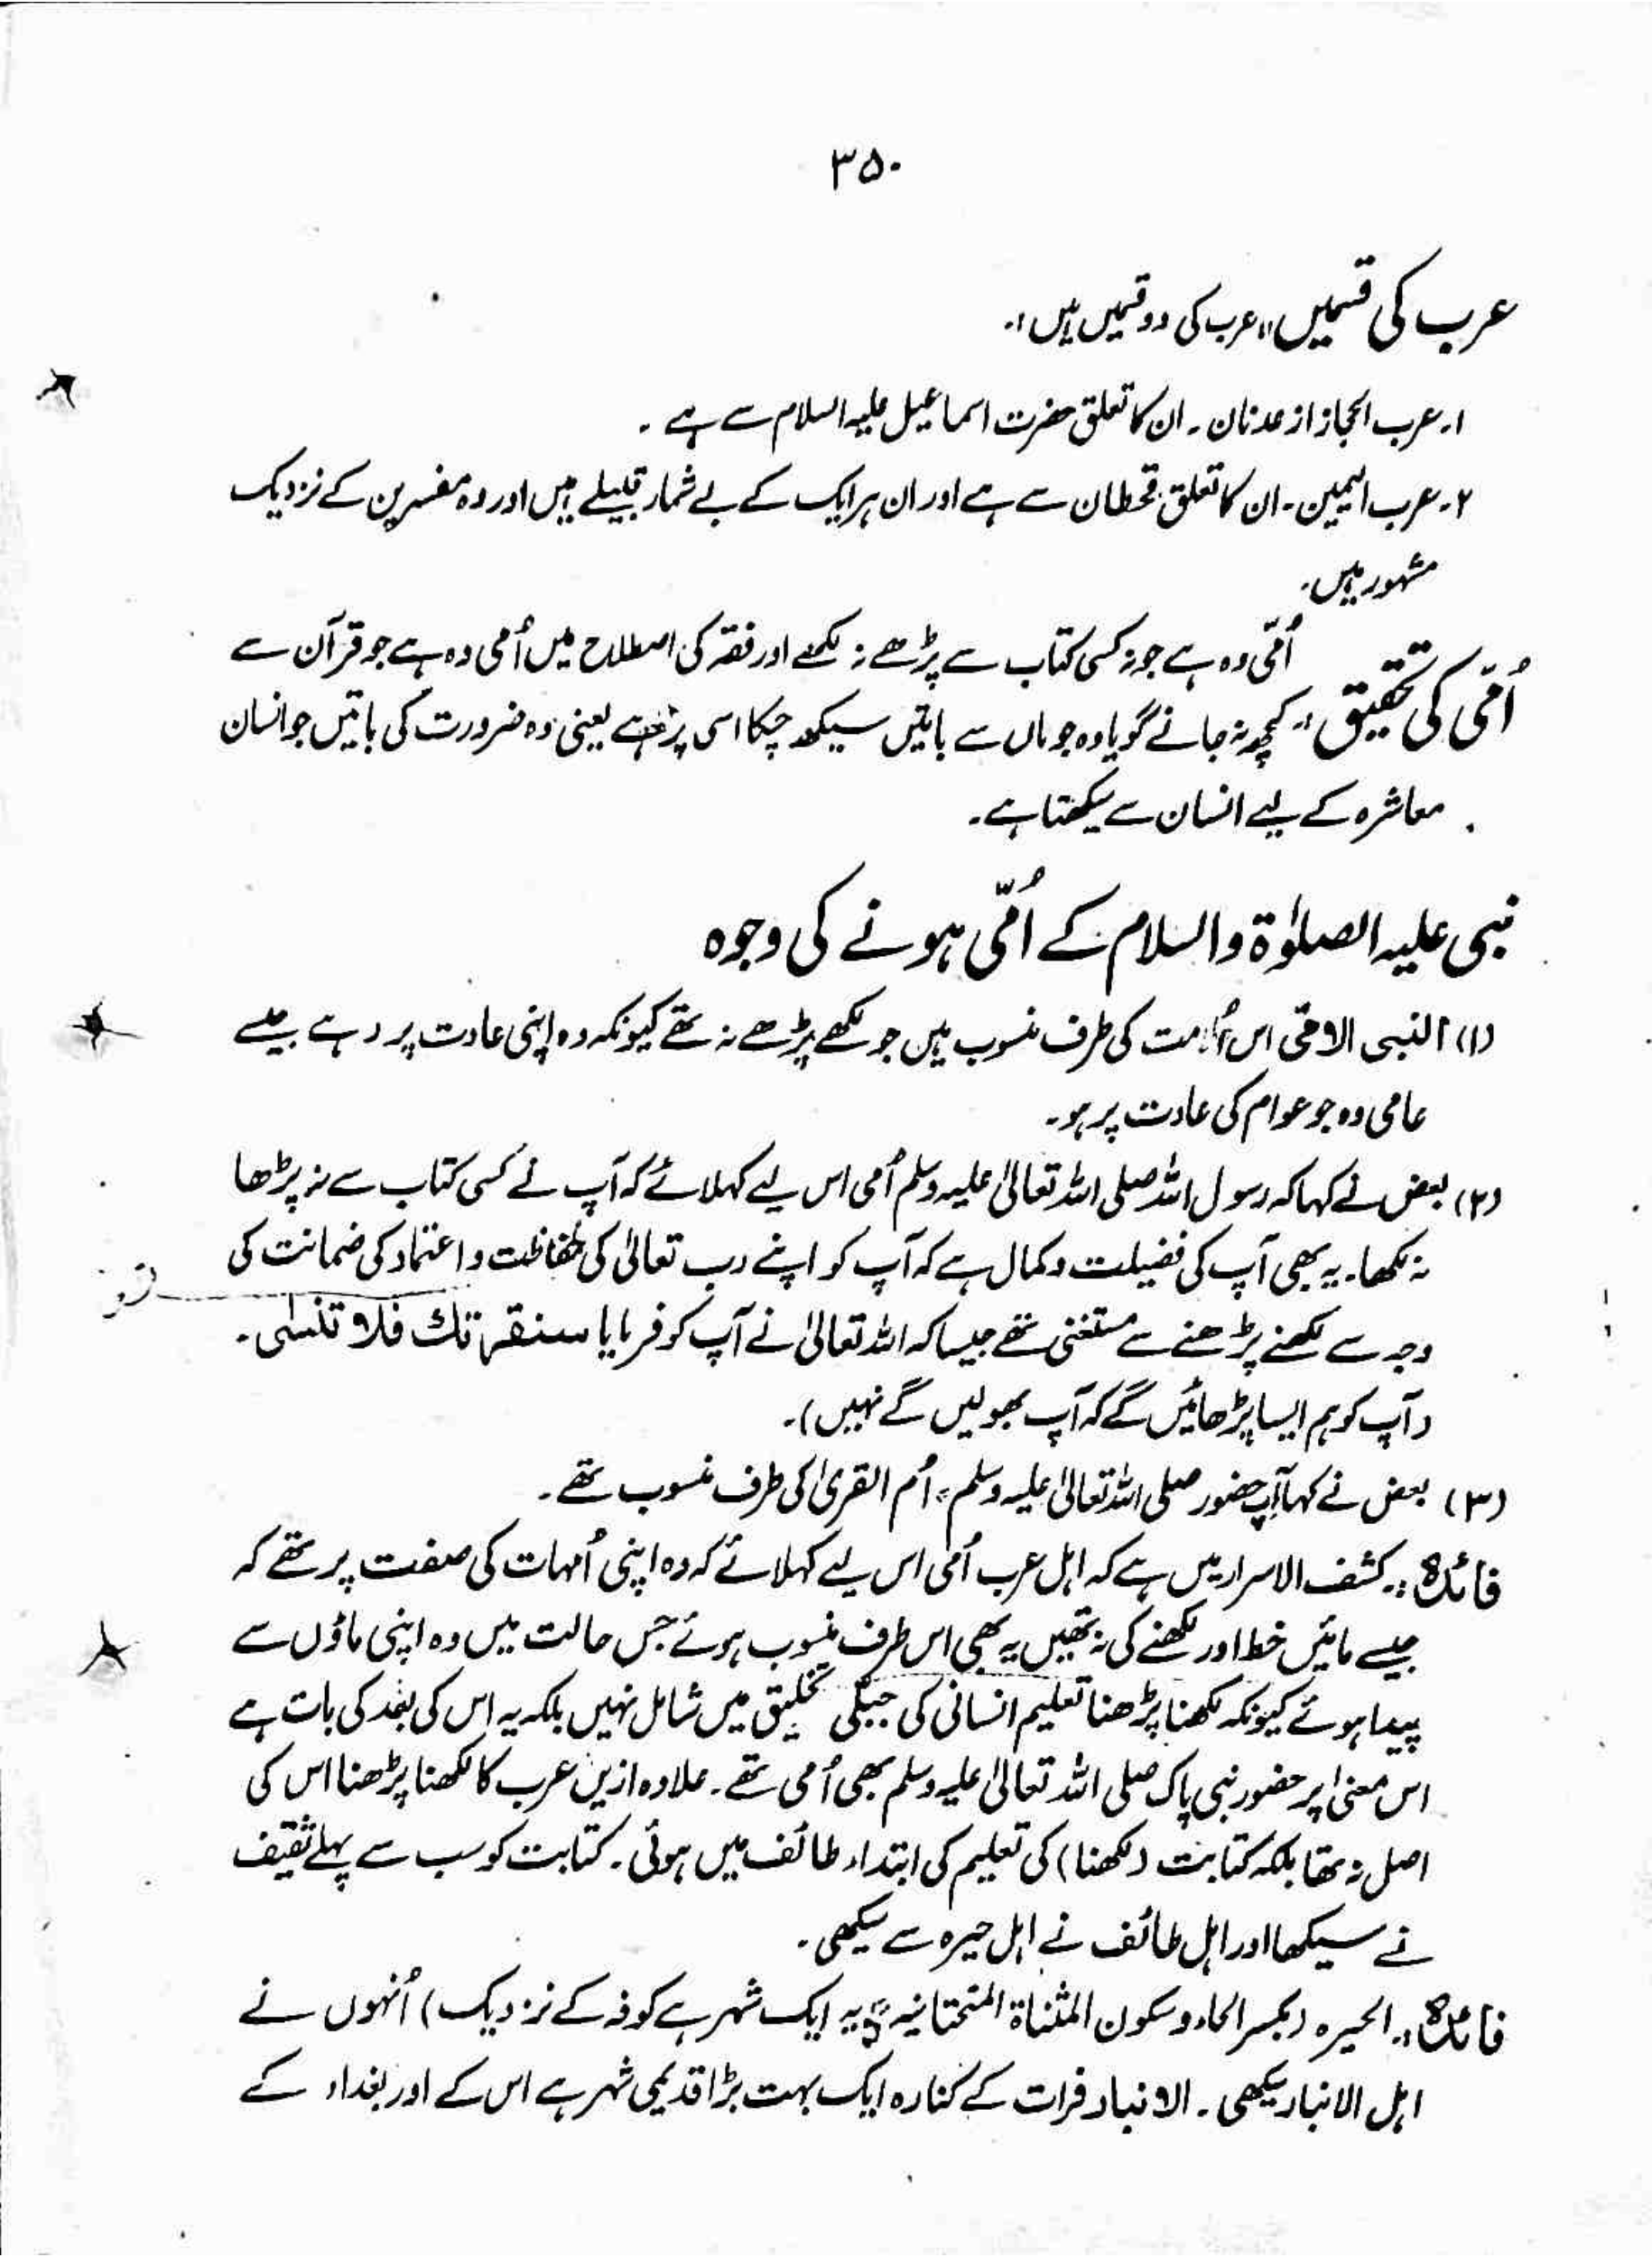 ۳۵۰
عرب کی قسمیں :۔ عرب کی دو قسمیں ہیں :۔
۱۔ عرب الحجاز از عدنان ۔ ان کا تعلق حضرت اسماعیل علیہ السلام سے ہے ۔
۲۔ عرب الیمین ۔ ان کا تعلق قحطان سے ہے اور ان ہر ایک کے بے شمار قبیلے ہیں اور وہ مفسرین کے نزدیک
مشہور ہیں۔
اُمّی وہ ہے جو نہ کسی کتاب سے پڑھے نہ لکھے اور فقہ کی اصطلاح میں اُمی وہ ہے جو قرآن سے
اُمّی کی تحقیق :۔ کچھ نہ جانے گویا وہ جو ماں سے باتیں سیکھ چکا اسی پر ہے یعنی وہ ضرورت کی باتیں جو انسان
معاشرہ کے لیے انسان سے سیکھتا ہے۔
نبی علیہ الصلوٰۃ والسلام کے اُمّی ہونے کی وجوہ
(۱) النبی الامّی اس اُمت کی طرف منسوب ہیں جو لکھے پڑھے نہ تھے کیونکہ وہ اپنی عادت پر رہے جیسے
عامی وہ جو عوام کی عادت پر ہو۔
(۲) بعض نے کہا کہ رسول اللہ صلی اللہ تعالیٰ علیہ وسلم اُمی اس لیے کہلائے کہ آپ نے کسی کتاب سے نہ پڑھا
نہ لکھا۔ یہ بھی آپ کی فضیلت و کمال ہے کہ آپ کو اپنے رب تعالیٰ کی حفاظت و اعتماد کی ضمانت کی
وجہ سے لکھنے پڑھنے سے مستغنی تھے جیسا کہ اللہ تعالیٰ نے آپ کو فرمایا سنقرئک فلا تنسٰی ۔
(آپ کو ہم ایسا پڑھائیں گے کہ آپ بھولیں گے نہیں)۔
(۳) بعض نے کہا آپ حضور صلی اللہ تعالیٰ علیہ وسلم، اُم القریٰ کی طرف منسوب تھے ۔
فائدہ :۔ کشف الاسرار میں ہے کہ اہل عرب اُمی اس لیے کہلائے کہ وہ اپنی اُمہات کی صفت پر تھے کہ
جیسے مائیں خط اور لکھنے کی نہ تھیں یہ بھی اس طرف منسوب ہوئے جس حالت میں وہ اپنی ماؤں سے
پیدا ہوئے کیونکہ لکھنا پڑھنا تعلیم انسانی کی جبلّی تخلیق میں شامل نہیں بلکہ یہ اس کی بعد کی بات ہے
اس معنیٰ پر حضور نبی پاک صلی اللہ تعالیٰ علیہ وسلم بھی اُمی تھے ۔ علاوہ ازیں عرب کا لکھنا پڑھنا اس کی
اصل نہ تھا بلکہ کتابت (لکھنا) کی تعلیم کی ابتداء طائف میں ہوئی ۔ کتابت کو سب سے پہلے ثقیف
نے سیکھا اور اہل طائف نے اہل حیرہ سے سیکھی ۔
فائدہ :۔ الحیرہ (بکسر الحاء و سکون المثناۃ التحتانیہ یہ ایک شہر ہے کوفہ کے نزدیک) اُنہوں نے
اہل الانبار سیکھی ۔ الانبار فرات کے کنارہ ایک بہت بڑا قدیمی شہر ہے اس کے اور بغداد کے